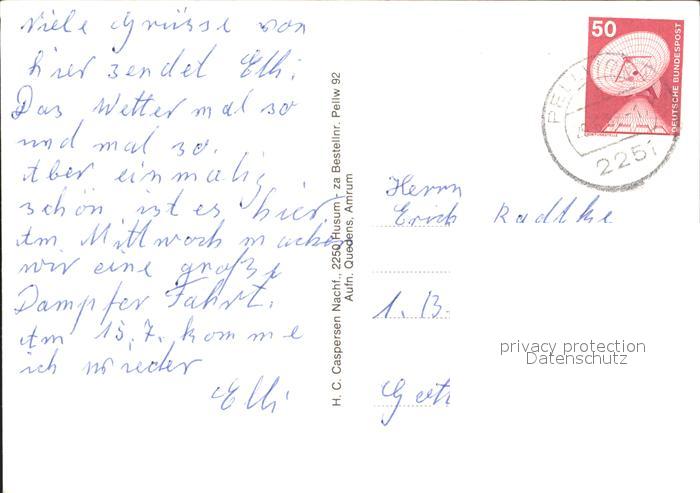 Viele Grüsse von
hier sendet Elli.
Das Wetter mal so
und mal so.
Aber einmalig
schön ist es hier.
Am Mittwoch machen
wir eine große
Dampfer Fahrt.
Am 15.7. komme
ich wieder
Elli
H. C. Caspersen Nachf., 2250 Husum - za Bestellnr. Pellw 92
Aufn. Quedens, Amrum
50
DEUTSCHE BUNDESPOST
PELLW
2251
Herrn
Erich Radtke
1. B.
privacy protection
Datenschutz